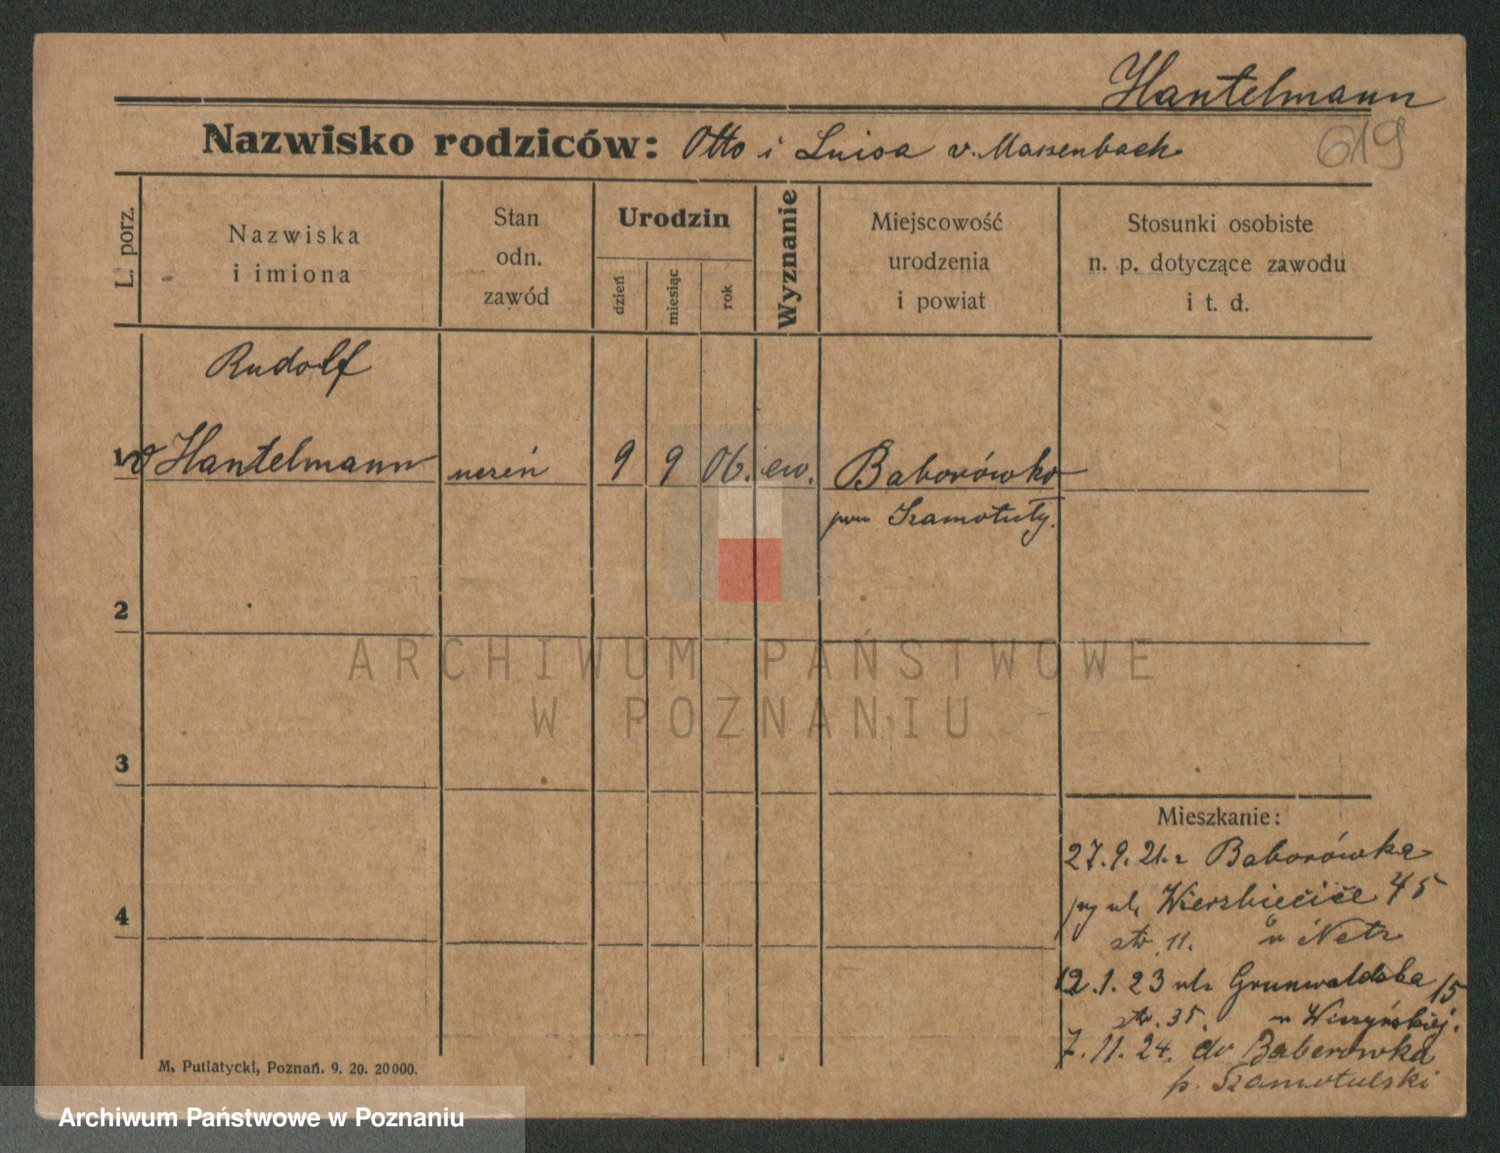 Hantelmann
619
Nazwisko rodziców: Otto i Luisa v. Massenbach
L. porz.
Nazwiska
i imiona
Stan
odn.
zawód
Urodzin
dzień
miesiąc
rok
Wyznanie
Miejscowość
urodzenia
i powiat
Stosunki osobiste
n. p. dotyczące zawodu
i t. d.
Rudolf
1 v Hantelmann uczeń 9 9 06. ew. Baborówko
pow Szamotuły.
2
ARCHIWUM PAŃSTWOWE
W POZNANIU
3
Mieszkanie:
27.9.21. z Baborówka
4
przy ul. Wierzbięcice 45
str. 11. u Netz
12.1.23 ul. Grunwaldska 15
str. 35. u Wiszyńskiej.
7.11.24. do Baberowka
p. Szamotulski
M. Putiatycki, Poznań. 9. 20. 20000.
Archiwum Państwowe w Poznaniu